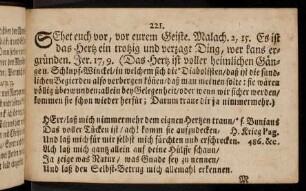 221.
SEhet euch vor, vor eurem Geiste. Malach. 2, 15. Es ist
das Hertz ein trotzig und verzagt Ding, wer kans er-
gründen. Jer. 17, 9. (Das Hertz ist voller heimlichen Gän-
gen, Schlupf-Winckel, in welchem sich die Diabolisten, daß ist die sünd-
lichen Begierden also verbergen können daß man meinet oder sie wären
völlig überwunden; allein bey Gelegenheit/ oder wenn wir sicher werden,
kommen sie schon wieder herfür; Darum traue dir ja nimmermehr.)
HErr/ laß mich nimmermehr dem eignen Hertzen traun/ * s. Bunians
Das voller Tücken ist/ ach! komm sie aufzudecken, H. Krieg Pag.
Und laß mich für mir selbst mich fürchten und erschrecken. 486. &c.
Ach laß mich gantz allein auf deine Hülffe schaun/
Ja zeige was Natur/ was Gnade sey zu nennen/
Und laß den Selbst-Betrug mich allemahl erkennen.
M